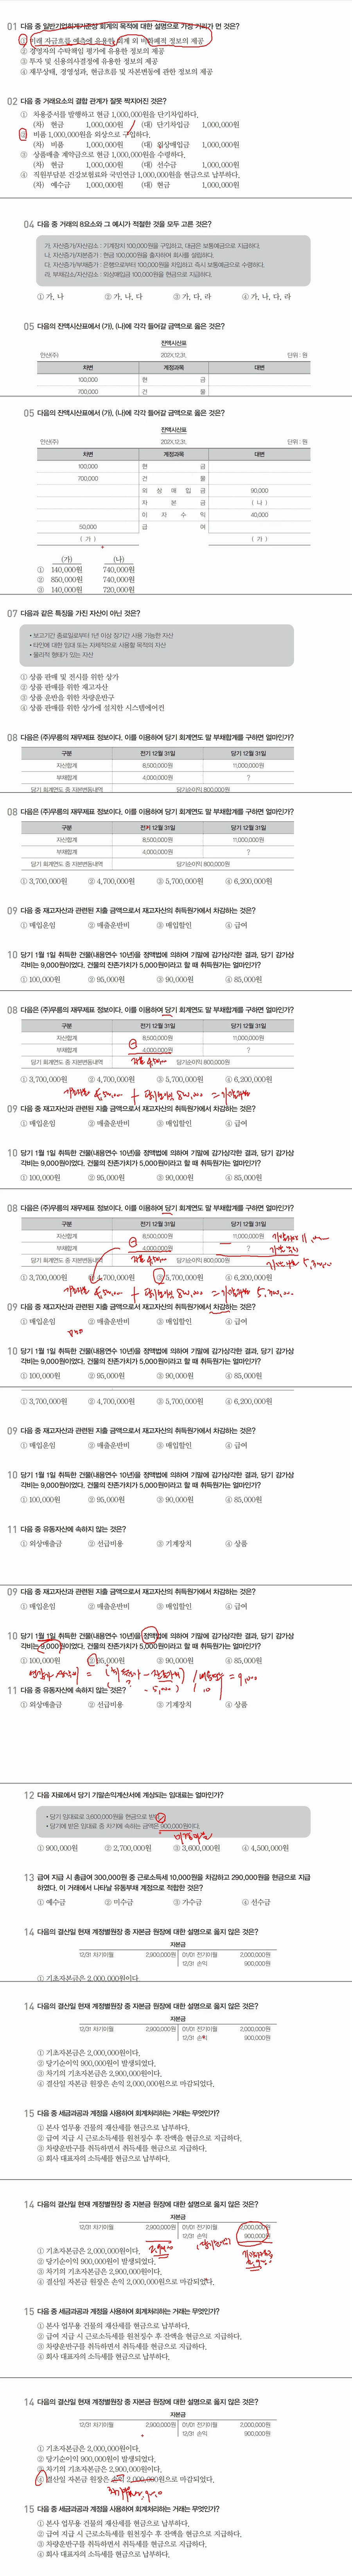 01 다음 중 일반기업회계기준상 회계의 목적에 대한 설명으로 가장 거리가 먼 것은?
① 미래 자금흐름 예측에 유용한 회계 외 비화폐적 정보의 제공
② 경영자의 수탁책임 평가에 유용한 정보의 제공
③ 투자 및 신용의사결정에 유용한 정보의 제공
④ 재무상태, 경영성과, 현금흐름 및 자본변동에 관한 정보의 제공
02 다음 중 거래요소의 결합 관계가 잘못 짝지어진 것은?
① 차용증서를 발행하고 현금 1,000,000원을 단기차입하다.
(차) 현금 1,000,000원 (대) 단기차입금 1,000,000원
② 비품 1,000,000원을 외상으로 구입하다.
(차) 비품 1,000,000원 (대) 외상매입금 1,000,000원
③ 상품매출 계약금으로 현금 1,000,000원을 수령하다.
(차) 현금 1,000,000원 (대) 선수금 1,000,000원
④ 직원부담분 건강보험료와 국민연금 1,000,000원을 현금으로 납부하다.
(차) 예수금 1,000,000원 (대) 현금 1,000,000원
04 다음 중 거래의 8요소와 그 예시가 적절한 것을 모두 고른 것은?
가. 자산증가/자산감소 : 기계장치 100,000원을 구입하고, 대금은 보통예금으로 지급하다.
나. 자산증가/자본증가 : 현금 100,000원을 출자하여 회사를 설립하다.
다. 자산증가/부채증가 : 은행으로부터 100,000원을 차입하고 즉시 보통예금으로 수령하다.
라. 부채감소/자산감소 : 외상매입금 100,000원을 현금으로 지급하다.
① 가, 나 ② 가, 나, 다 ③ 가, 다, 라 ④ 가, 나, 다, 라
05 다음의 잔액시산표에서 (가), (나)에 각각 들어갈 금액으로 옳은 것은?
잔액시산표
안산(주) 202X.12.31. 단위 : 원
차변 계정과목 대변
100,000 현 금
700,000 건 물
05 다음의 잔액시산표에서 (가), (나)에 각각 들어갈 금액으로 옳은 것은?
잔액시산표
안산(주) 202X.12.31. 단위 : 원
차변 계정과목 대변
100,000 현 금
700,000 건 물
외 상 매 입 금 90,000
자 본 금 ( 나 )
이 자 수 익 40,000
50,000 급 여
( 가 ) ( 가 )
(가) (나)
① 140,000원 740,000원
② 850,000원 740,000원
③ 140,000원 720,000원
07 다음과 같은 특징을 가진 자산이 아닌 것은?
• 보고기간 종료일로부터 1년 이상 장기간 사용 가능한 자산
• 타인에 대한 임대 또는 자체적으로 사용할 목적의 자산
• 물리적 형태가 있는 자산
① 상품 판매 및 전시를 위한 상가
② 상품 판매를 위한 재고자산
③ 상품 운반을 위한 차량운반구
④ 상품 판매를 위한 상가에 설치한 시스템에어컨
08 다음은 (주)무릉의 재무제표 정보이다. 이를 이용하여 당기 회계연도 말 부채합계를 구하면 얼마인가?
구분 전기 12월 31일 당기 12월 31일
자산합계 8,500,000원 11,000,000원
부채합계 4,000,000원 ?
당기 회계연도 중 자본변동내역 당기순이익 800,000원
08 다음은 (주)무릉의 재무제표 정보이다. 이를 이용하여 당기 회계연도 말 부채합계를 구하면 얼마인가?
구분 전기 12월 31일 당기 12월 31일
자산합계 8,500,000원 11,000,000원
부채합계 4,000,000원 ?
당기 회계연도 중 자본변동내역 당기순이익 800,000원
① 3,700,000원 ② 4,700,000원 ③ 5,700,000원 ④ 6,200,000원
09 다음 중 재고자산과 관련된 지출 금액으로서 재고자산의 취득원가에서 차감하는 것은?
① 매입운임 ② 매출운반비 ③ 매입할인 ④ 급여
10 당기 1월 1일 취득한 건물(내용연수 10년)을 정액법에 의하여 기말에 감가상각한 결과, 당기 감가상
각비는 9,000원이었다. 건물의 잔존가치가 5,000원이라고 할 때 취득원가는 얼마인가?
① 100,000원 ② 95,000원 ③ 90,000원 ④ 85,000원
08 다음은 (주)무릉의 재무제표 정보이다. 이를 이용하여 당기 회계연도 말 부채합계를 구하면 얼마인가?
구분 전기 12월 31일 당기 12월 31일
자산합계 8,500,000원 11,000,000원
부채합계 4,000,000원 ?
당기 회계연도 중 자본변동내역 당기순이익 800,000원
① 3,700,000원 ② 4,700,000원 ③ 5,700,000원 ④ 6,200,000원
09 다음 중 재고자산과 관련된 지출 금액으로서 재고자산의 취득원가에서 차감하는 것은?
① 매입운임 ② 매출운반비 ③ 매입할인 ④ 급여
10 당기 1월 1일 취득한 건물(내용연수 10년)을 정액법에 의하여 기말에 감가상각한 결과, 당기 감가상
각비는 9,000원이었다. 건물의 잔존가치가 5,000원이라고 할 때 취득원가는 얼마인가?
① 100,000원 ② 95,000원 ③ 90,000원 ④ 85,000원
08 다음은 (주)무릉의 재무제표 정보이다. 이를 이용하여 당기 회계연도 말 부채합계를 구하면 얼마인가?
구분 전기 12월 31일 당기 12월 31일
자산합계 8,500,000원 11,000,000원
부채합계 4,000,000원 ?
당기 회계연도 중 자본변동내역 당기순이익 800,000원
① 3,700,000원 ② 4,700,000원 ③ 5,700,000원 ④ 6,200,000원
09 다음 중 재고자산과 관련된 지출 금액으로서 재고자산의 취득원가에서 차감하는 것은?
① 매입운임 ② 매출운반비 ③ 매입할인 ④ 급여
10 당기 1월 1일 취득한 건물(내용연수 10년)을 정액법에 의하여 기말에 감가상각한 결과, 당기 감가상
각비는 9,000원이었다. 건물의 잔존가치가 5,000원이라고 할 때 취득원가는 얼마인가?
① 100,000원 ② 95,000원 ③ 90,000원 ④ 85,000원
① 3,700,000원 ② 4,700,000원 ③ 5,700,000원 ④ 6,200,000원
09 다음 중 재고자산과 관련된 지출 금액으로서 재고자산의 취득원가에서 차감하는 것은?
① 매입운임 ② 매출운반비 ③ 매입할인 ④ 급여
10 당기 1월 1일 취득한 건물(내용연수 10년)을 정액법에 의하여 기말에 감가상각한 결과, 당기 감가상
각비는 9,000원이었다. 건물의 잔존가치가 5,000원이라고 할 때 취득원가는 얼마인가?
① 100,000원 ② 95,000원 ③ 90,000원 ④ 85,000원
11 다음 중 유동자산에 속하지 않는 것은?
① 외상매출금 ② 선급비용 ③ 기계장치 ④ 상품
09 다음 중 재고자산과 관련된 지출 금액으로서 재고자산의 취득원가에서 차감하는 것은?
① 매입운임 ② 매출운반비 ③ 매입할인 ④ 급여
10 당기 1월 1일 취득한 건물(내용연수 10년)을 정액법에 의하여 기말에 감가상각한 결과, 당기 감가상
각비는 9,000원이었다. 건물의 잔존가치가 5,000원이라고 할 때 취득원가는 얼마인가?
① 100,000원 ② 95,000원 ③ 90,000원 ④ 85,000원
11 다음 중 유동자산에 속하지 않는 것은?
① 외상매출금 ② 선급비용 ③ 기계장치 ④ 상품
12 다음 자료에서 당기 기말손익계산서에 계상되는 임대료는 얼마인가?
• 당기 임대료로 3,600,000원을 현금으로 받다.
• 당기에 받은 임대료 중 차기에 속하는 금액은 900,000원이다.
① 900,000원 ② 2,700,000원 ③ 3,600,000원 ④ 4,500,000원
13 급여 지급 시 총급여 300,000원 중 근로소득세 10,000원을 차감하고 290,000원을 현금으로 지급
하였다. 이 거래에서 나타날 유동부채 계정으로 적합한 것은?
① 예수금 ② 미수금 ③ 가수금 ④ 선수금
14 다음의 결산일 현재 계정별원장 중 자본금 원장에 대한 설명으로 옳지 않은 것은?
자본금
12/31 차기이월 2,900,000원 01/01 전기이월 2,000,000원
12/31 손익 900,000원
① 기초자본금은 2,000,000원이다.
14 다음의 결산일 현재 계정별원장 중 자본금 원장에 대한 설명으로 옳지 않은 것은?
자본금
12/31 차기이월 2,900,000원 01/01 전기이월 2,000,000원
12/31 손익 900,000원
① 기초자본금은 2,000,000원이다.
② 당기순이익 900,000원이 발생되었다.
③ 차기의 기초자본금은 2,900,000원이다.
④ 결산일 자본금 원장은 손익 2,000,000원으로 마감되었다.
15 다음 중 세금과공과 계정을 사용하여 회계처리하는 거래는 무엇인가?
① 본사 업무용 건물의 재산세를 현금으로 납부하다.
② 급여 지급 시 근로소득세를 원천징수 후 잔액을 현금으로 지급하다.
③ 차량운반구를 취득하면서 취득세를 현금으로 지급하다.
④ 회사 대표자의 소득세를 현금으로 납부하다.
14 다음의 결산일 현재 계정별원장 중 자본금 원장에 대한 설명으로 옳지 않은 것은?
자본금
12/31 차기이월 2,900,000원 01/01 전기이월 2,000,000원
12/31 손익 900,000원
① 기초자본금은 2,000,000원이다.
② 당기순이익 900,000원이 발생되었다.
③ 차기의 기초자본금은 2,900,000원이다.
④ 결산일 자본금 원장은 손익 2,000,000원으로 마감되었다.
15 다음 중 세금과공과 계정을 사용하여 회계처리하는 거래는 무엇인가?
① 본사 업무용 건물의 재산세를 현금으로 납부하다.
② 급여 지급 시 근로소득세를 원천징수 후 잔액을 현금으로 지급하다.
③ 차량운반구를 취득하면서 취득세를 현금으로 지급하다.
④ 회사 대표자의 소득세를 현금으로 납부하다.
14 다음의 결산일 현재 계정별원장 중 자본금 원장에 대한 설명으로 옳지 않은 것은?
자본금
12/31 차기이월 2,900,000원 01/01 전기이월 2,000,000원
12/31 손익 900,000원
① 기초자본금은 2,000,000원이다.
② 당기순이익 900,000원이 발생되었다.
③ 차기의 기초자본금은 2,900,000원이다.
④ 결산일 자본금 원장은 손익 2,000,000원으로 마감되었다.
15 다음 중 세금과공과 계정을 사용하여 회계처리하는 거래는 무엇인가?
① 본사 업무용 건물의 재산세를 현금으로 납부하다.
② 급여 지급 시 근로소득세를 원천징수 후 잔액을 현금으로 지급하다.
③ 차량운반구를 취득하면서 취득세를 현금으로 지급하다.
④ 회사 대표자의 소득세를 현금으로 납부하다.